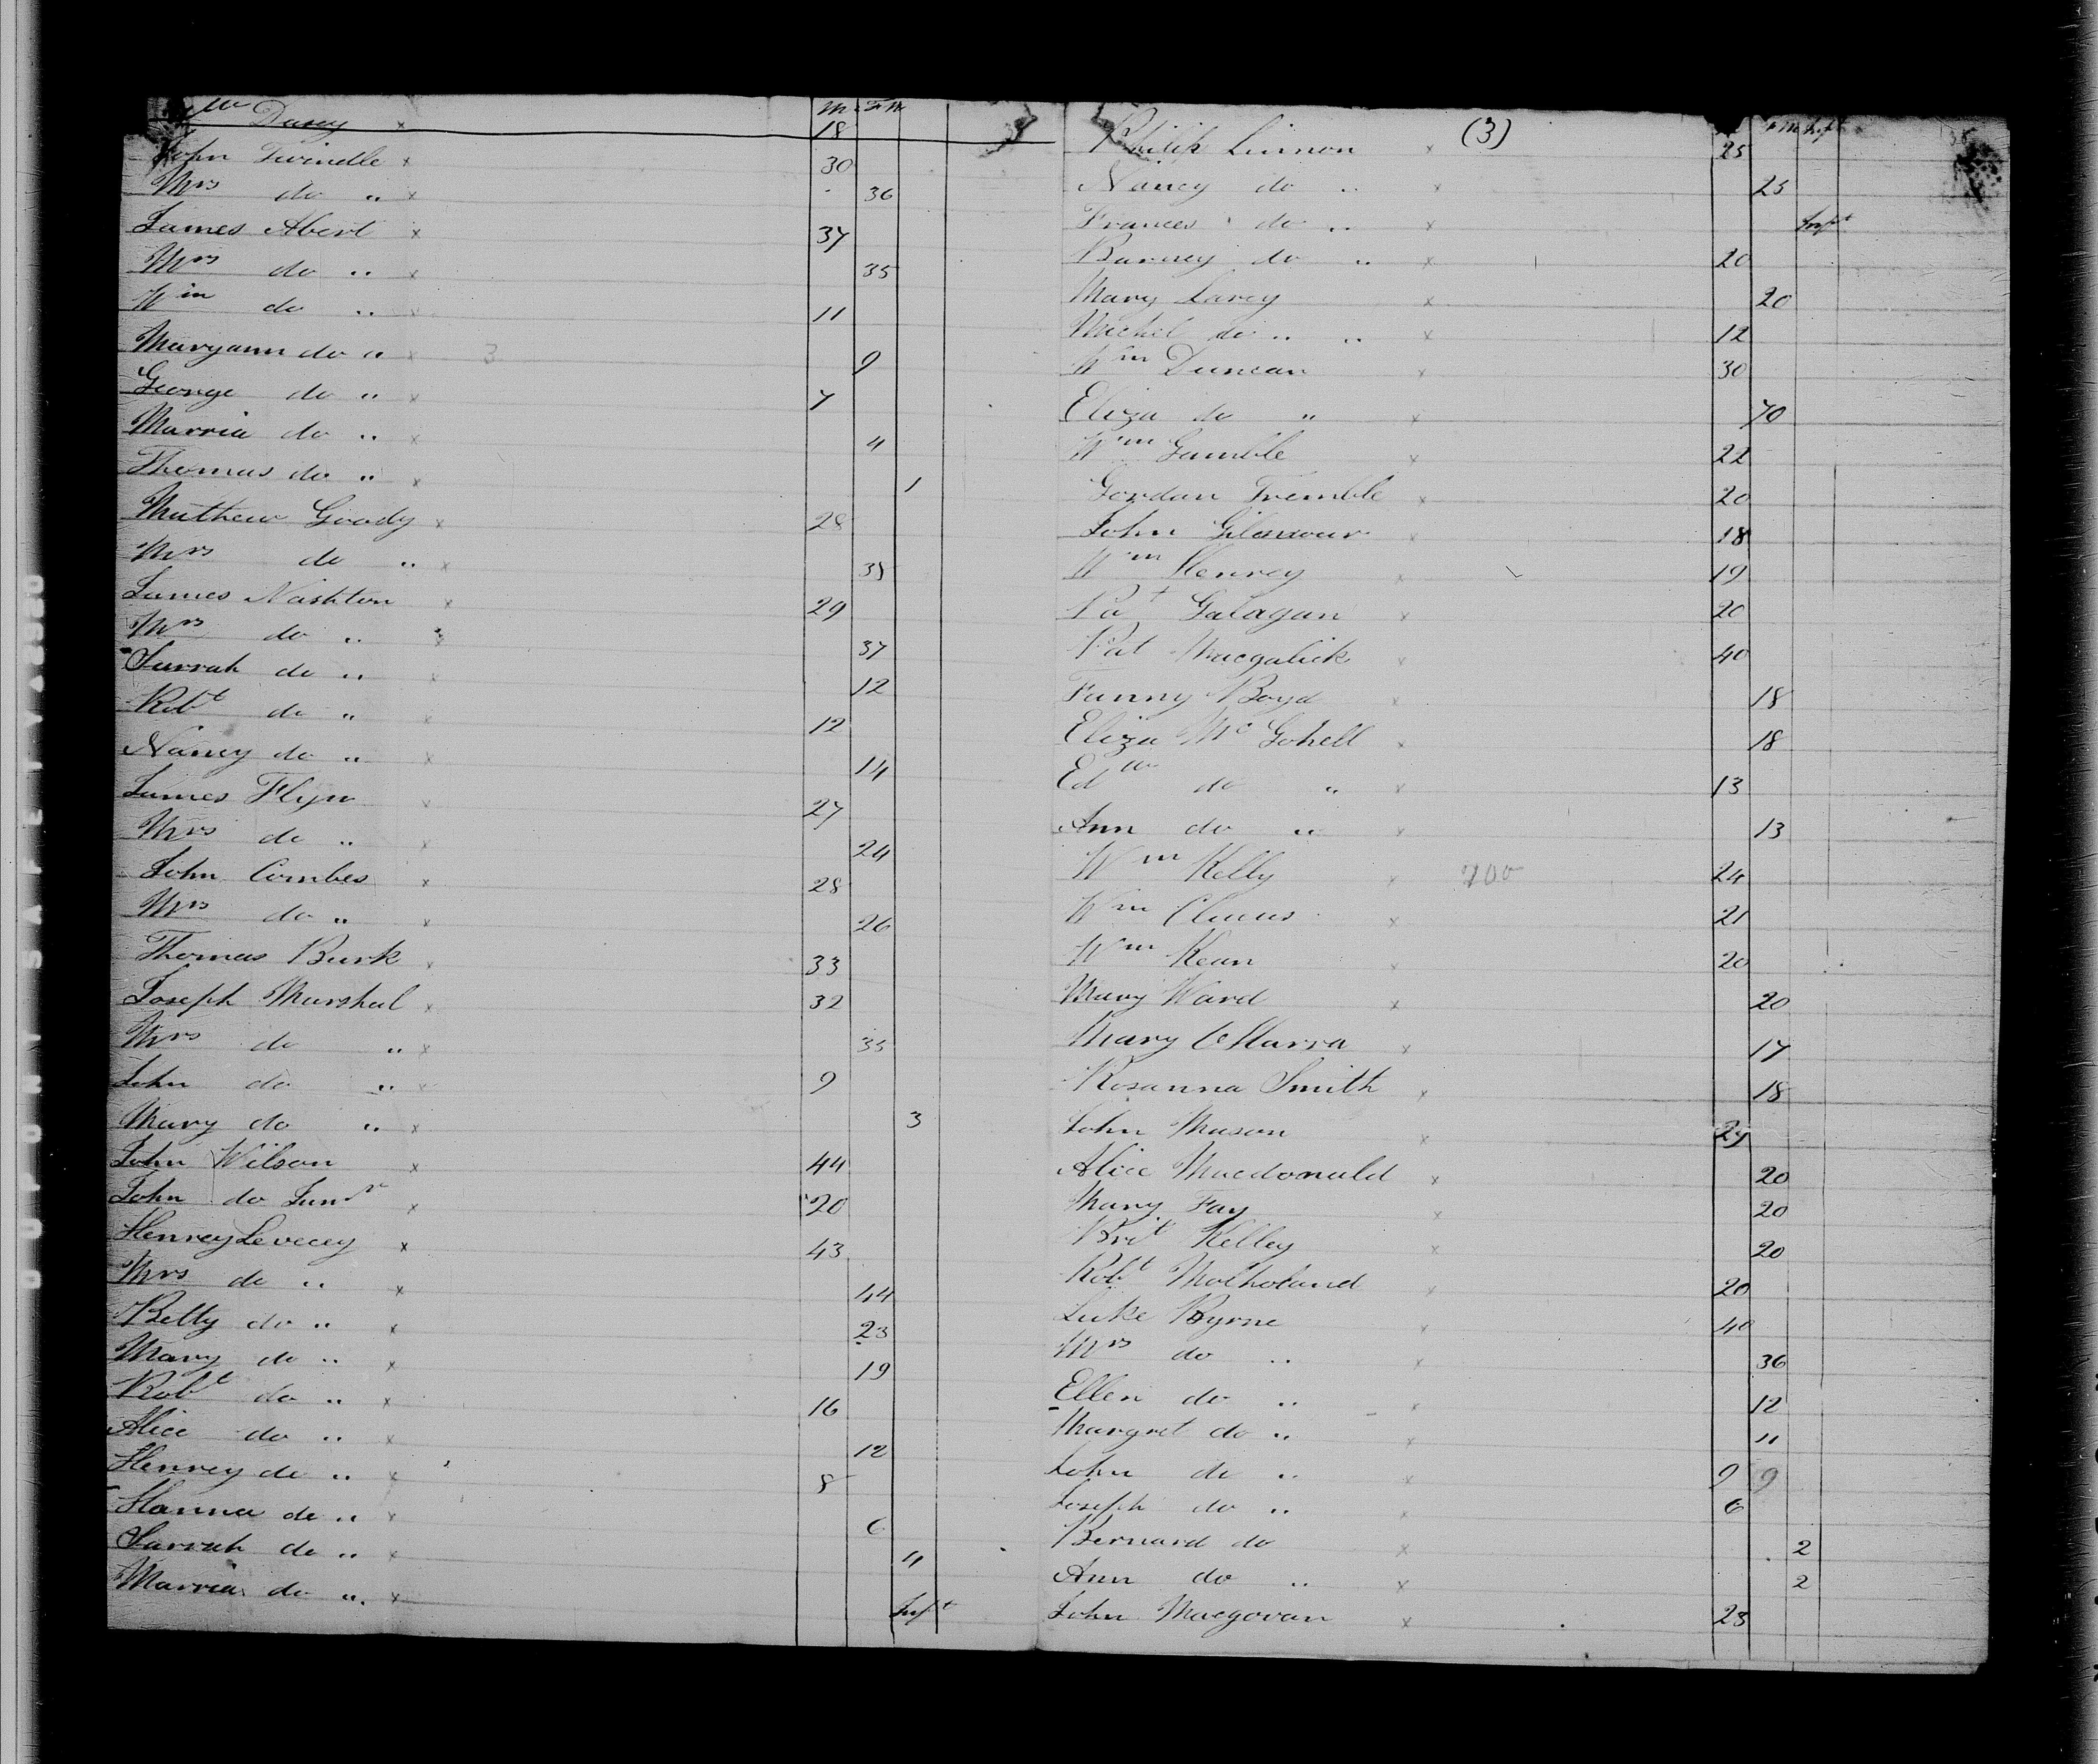 Wm Darcy x 18
M. FM
John Twindle x 30
Mrs do " x 36
James Abert x 37
Mrs do " x 35
Wm do " x 11
Maryann do " x 3 9
George do " x 7
Marria do " x 4
Thomas do " x 1
Mathew Goody x 28
Mrs do " x 35
James Nashton x 29
Mrs do " x 37
Sarrah do " x 12
Robt do " x 12
Nancy do " x 14
James Flyn x 27
Mrs do " x 24
John Combes x 28
Mrs do " x 26
Thomas Burk x 33
Joseph Marshal x 32
Mrs do " x 35
John do " x 9
Mary do " x 3
John Wilson x 44
John do Junr x 20
Henrey Levecey x 43
Mrs do " x 44
Betty do " x 23
Mary do " x 19
Robt do " x 16
Alice do " x 12
Henrey do " x 8
Hanna do " x 6
Sarrah do " x 4
Marria do " x Inft
(3)
FM Inft
Philip Linnon x 25
Nancy do " x 25
Frances do " x Inft
Barney do " x 20
Mary Larey x 20
Michel do " " x 12
Wm Duncan x 30
Eliza do " x 70
Wm Gamble x 22
Gordan Tremble x 20
John Gilmour x 18
Wm Henrey x 19
Pat Galagan x 20
Pat Macgalick x 40
Fanny Boyd x 18
Eliza Mc Gohell x 18
Edw do " x 13
Ann do " x 13
Wm Kelly x 700 24
Wm x 21
Wm Kean x 20
Mary Ward x 20
Mary OHarra x 17
Rosanna Smith x 18
John Mason x 27
Alice Macdonald x 20
Mary Fay x 20
Brit Kelley x 20
Robt Molholand x 20
Luke Byrne x 40
Mrs do " x 36
Ellen do " x 12
Margret do " x 11
John do " x 9 9
Joseph do " x 6
Bernard do x 2
Ann do " x 2
John Macgovan x 23